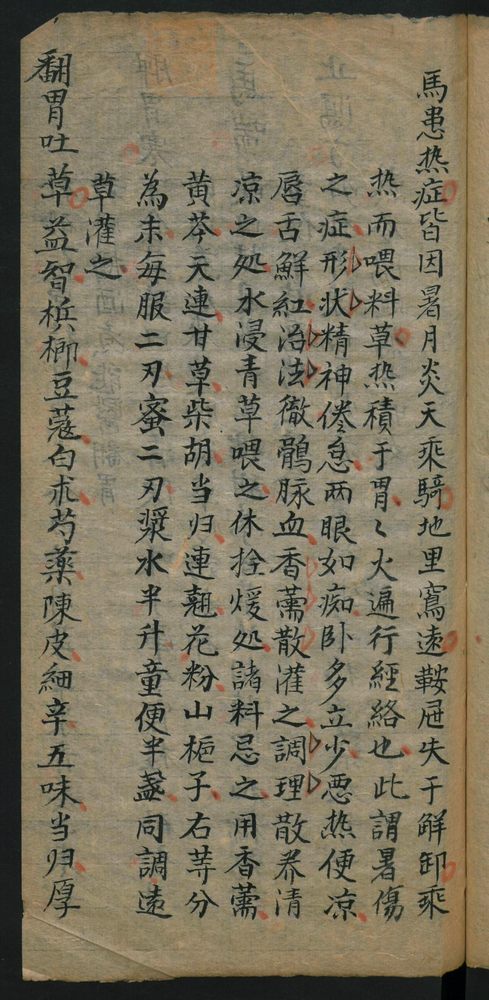 馬患热症皆因暑月炎天乘騎地里窵遠鞍屉失于解卸乘
热而喂料草热積于胃〻火遍行經絡也此謂暑傷
之症形状精神倦怠两眼如痴卧多立少悪热便凉
唇舌鮮紅治法徹鶻脉血香薷散灌之調理散养清
凉之处水浸青草喂之休拴煖処諸料忌之用香薷
黄芩天連甘草柴胡当归連翹花粉山梔子右等分
為末每服二刃蜜二刃漿水半升童便半盞同調遠
草灌之
翻胃吐草益智槟榔豆蔻白朮芍藥陳皮細辛五味当归厚